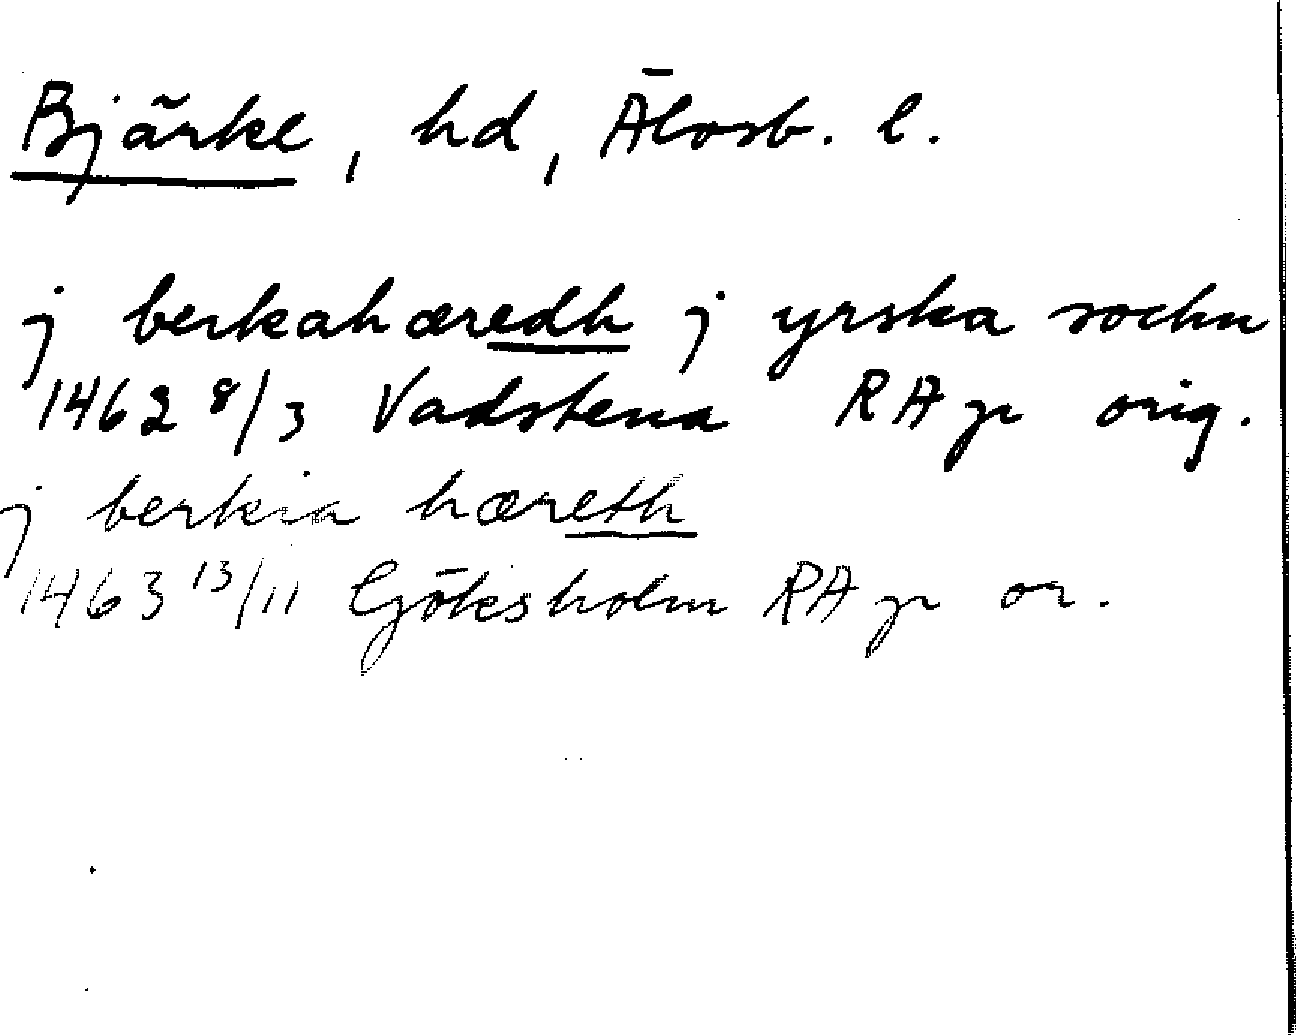 Bjärke, hd, Älvsb. l.
j berkahæredh j yrska sochn
1462 8/3 Vadstena RAp orig.
j berkia hæreth
1463 13/11 Göksholm RAp or.